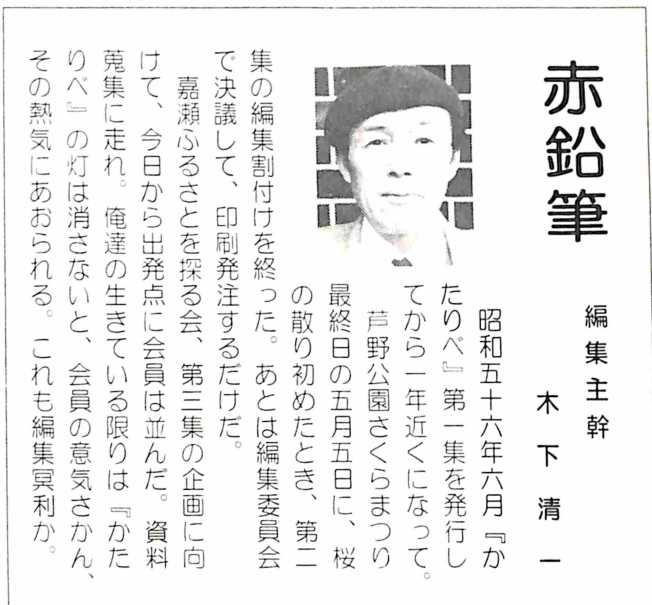 赤鉛筆
編集主幹
木下清一
昭和五十六年六月『か
たりべ』第一集を発行し
てから一年近くになって。
芦野公園さくらまつり
最終日の五月五日に、桜
の散り初めたとき、第二
集の編集割付けを終った。あとは編集委員会
で決議して、印刷発注するだけだ。
嘉瀬ふるさとを探る会、第三集の企画に向
けて、今日から出発点に会員は並んだ。資料
蒐集に走れ。俺達の生きている限りは『かた
りべ』の灯は消さないと、会員の意気さかん、
その熱気にあおられる。これも編集冥利か。